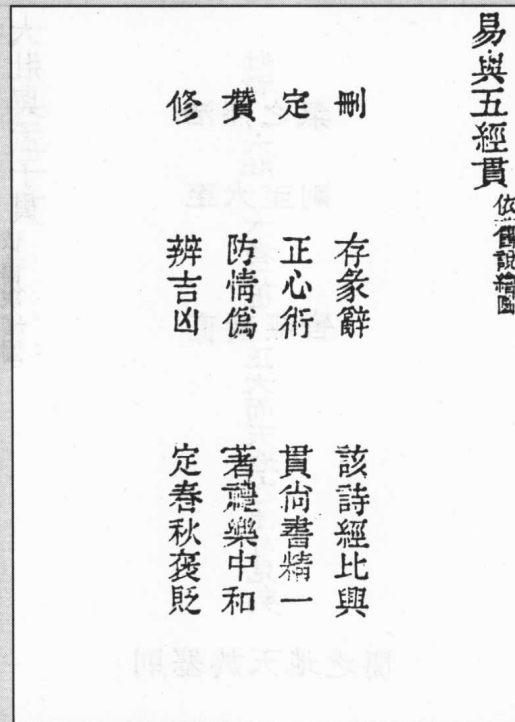 易與五經貫
依舊圖說繪圖
刪 存彖辭 該詩經比興
定 正心術 貫尚書精一
贊 防情僞 著禮樂中和
修 辨吉凶 定春秋褒貶